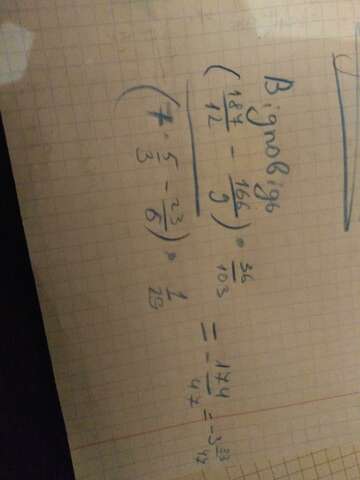 Відповідь
(187/12 - 166/9) · 36/103
(7 · 5/3 - 23/6) · 1/29
= - 174/47 = -3 33/47